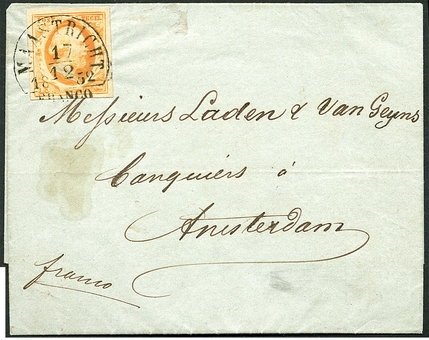 MAASTRICHT
17
12
1852
FRANCO
Messieurs Laden & Van Geyns
Banquiers à
Amsterdam
franco